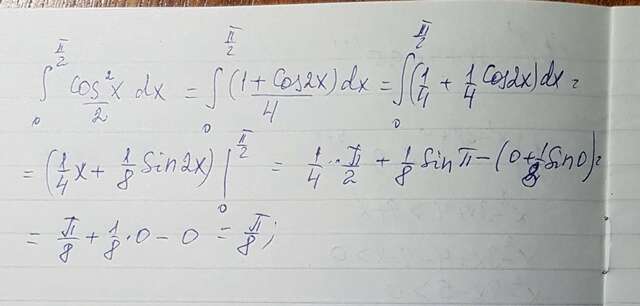 ∫₀^(π/2) cos²x/2 dx = ∫₀^(π/2) (1+cos2x)/4 dx = ∫₀^(π/2) (1/4 + 1/4 cos2x)dx =
= (1/4 x + 1/8 sin2x) |₀^(π/2) = 1/4 · π/2 + 1/8 sin π − (0+1/8 sin0) =
= π/8 + 1/8 · 0 − 0 = π/8;